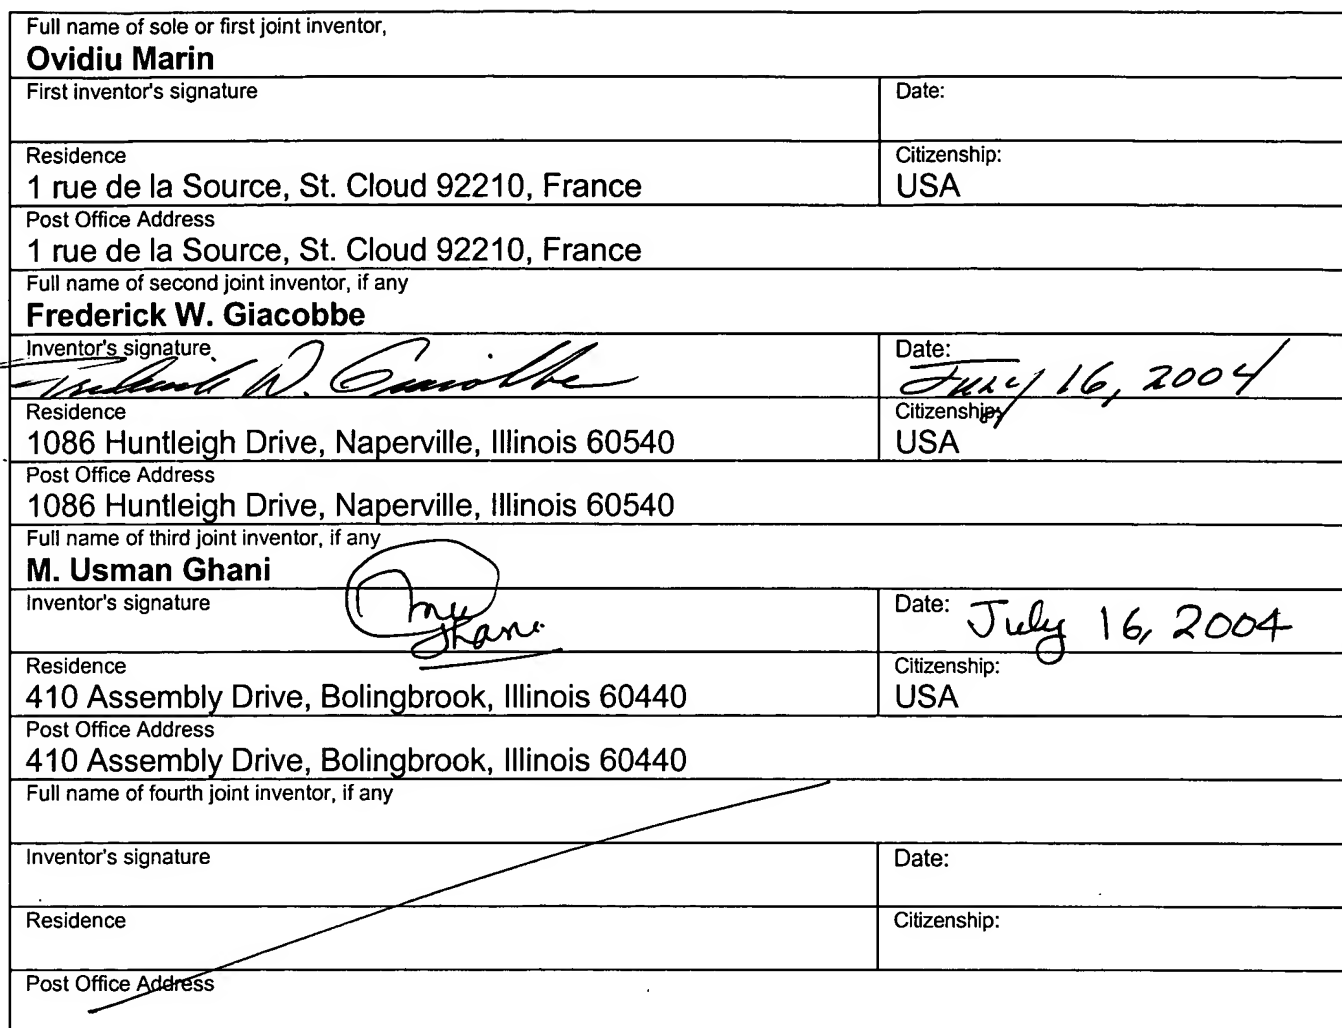 Full name of sole or first joint inventor,
Ovidiu Marin
First inventor's signature
Date:
Residence
Citizenship:
1 rue de la Source, St. Cloud 92210, France
USA
Post Office Address
1 rue de la Source, St. Cloud 92210, France
Full name of second joint inventor, if any
Frederick W. Giacobbe
Inventor's signature
Date:
Frederick W. Giacobbe
July 16, 2004
Residence
Citizenship:
1086 Huntleigh Drive, Naperville, Illinois 60540
USA
Post Office Address
1086 Huntleigh Drive, Naperville, Illinois 60540
Full name of third joint inventor, if any
M. Usman Ghani
Inventor's signature
Date: July 16, 2004
Ghani
Residence
Citizenship:
410 Assembly Drive, Bolingbrook, Illinois 60440
USA
Post Office Address
410 Assembly Drive, Bolingbrook, Illinois 60440
Full name of fourth joint inventor, if any
Inventor's signature
Date:
Residence
Citizenship:
Post Office Address